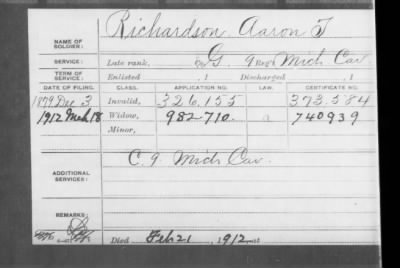 NAME OF SOLDIER: Richardson, Aaron T
SERVICE: Late rank, Co. G, 9 Reg't Mich Cav
TERM OF SERVICE: Enlisted , 1 Discharged , 1
DATE OF FILING. CLASS. APPLICATION NO. LAW. CERTIFICATE NO.
1879 Dec 3 Invalid, 326.155 373.584
1912 Mch 18 Widow, 982 710. a 740939
Minor,
ADDITIONAL SERVICES: C. 9 Mich Cav.
REMARKS:
Died Feb 21, 1912